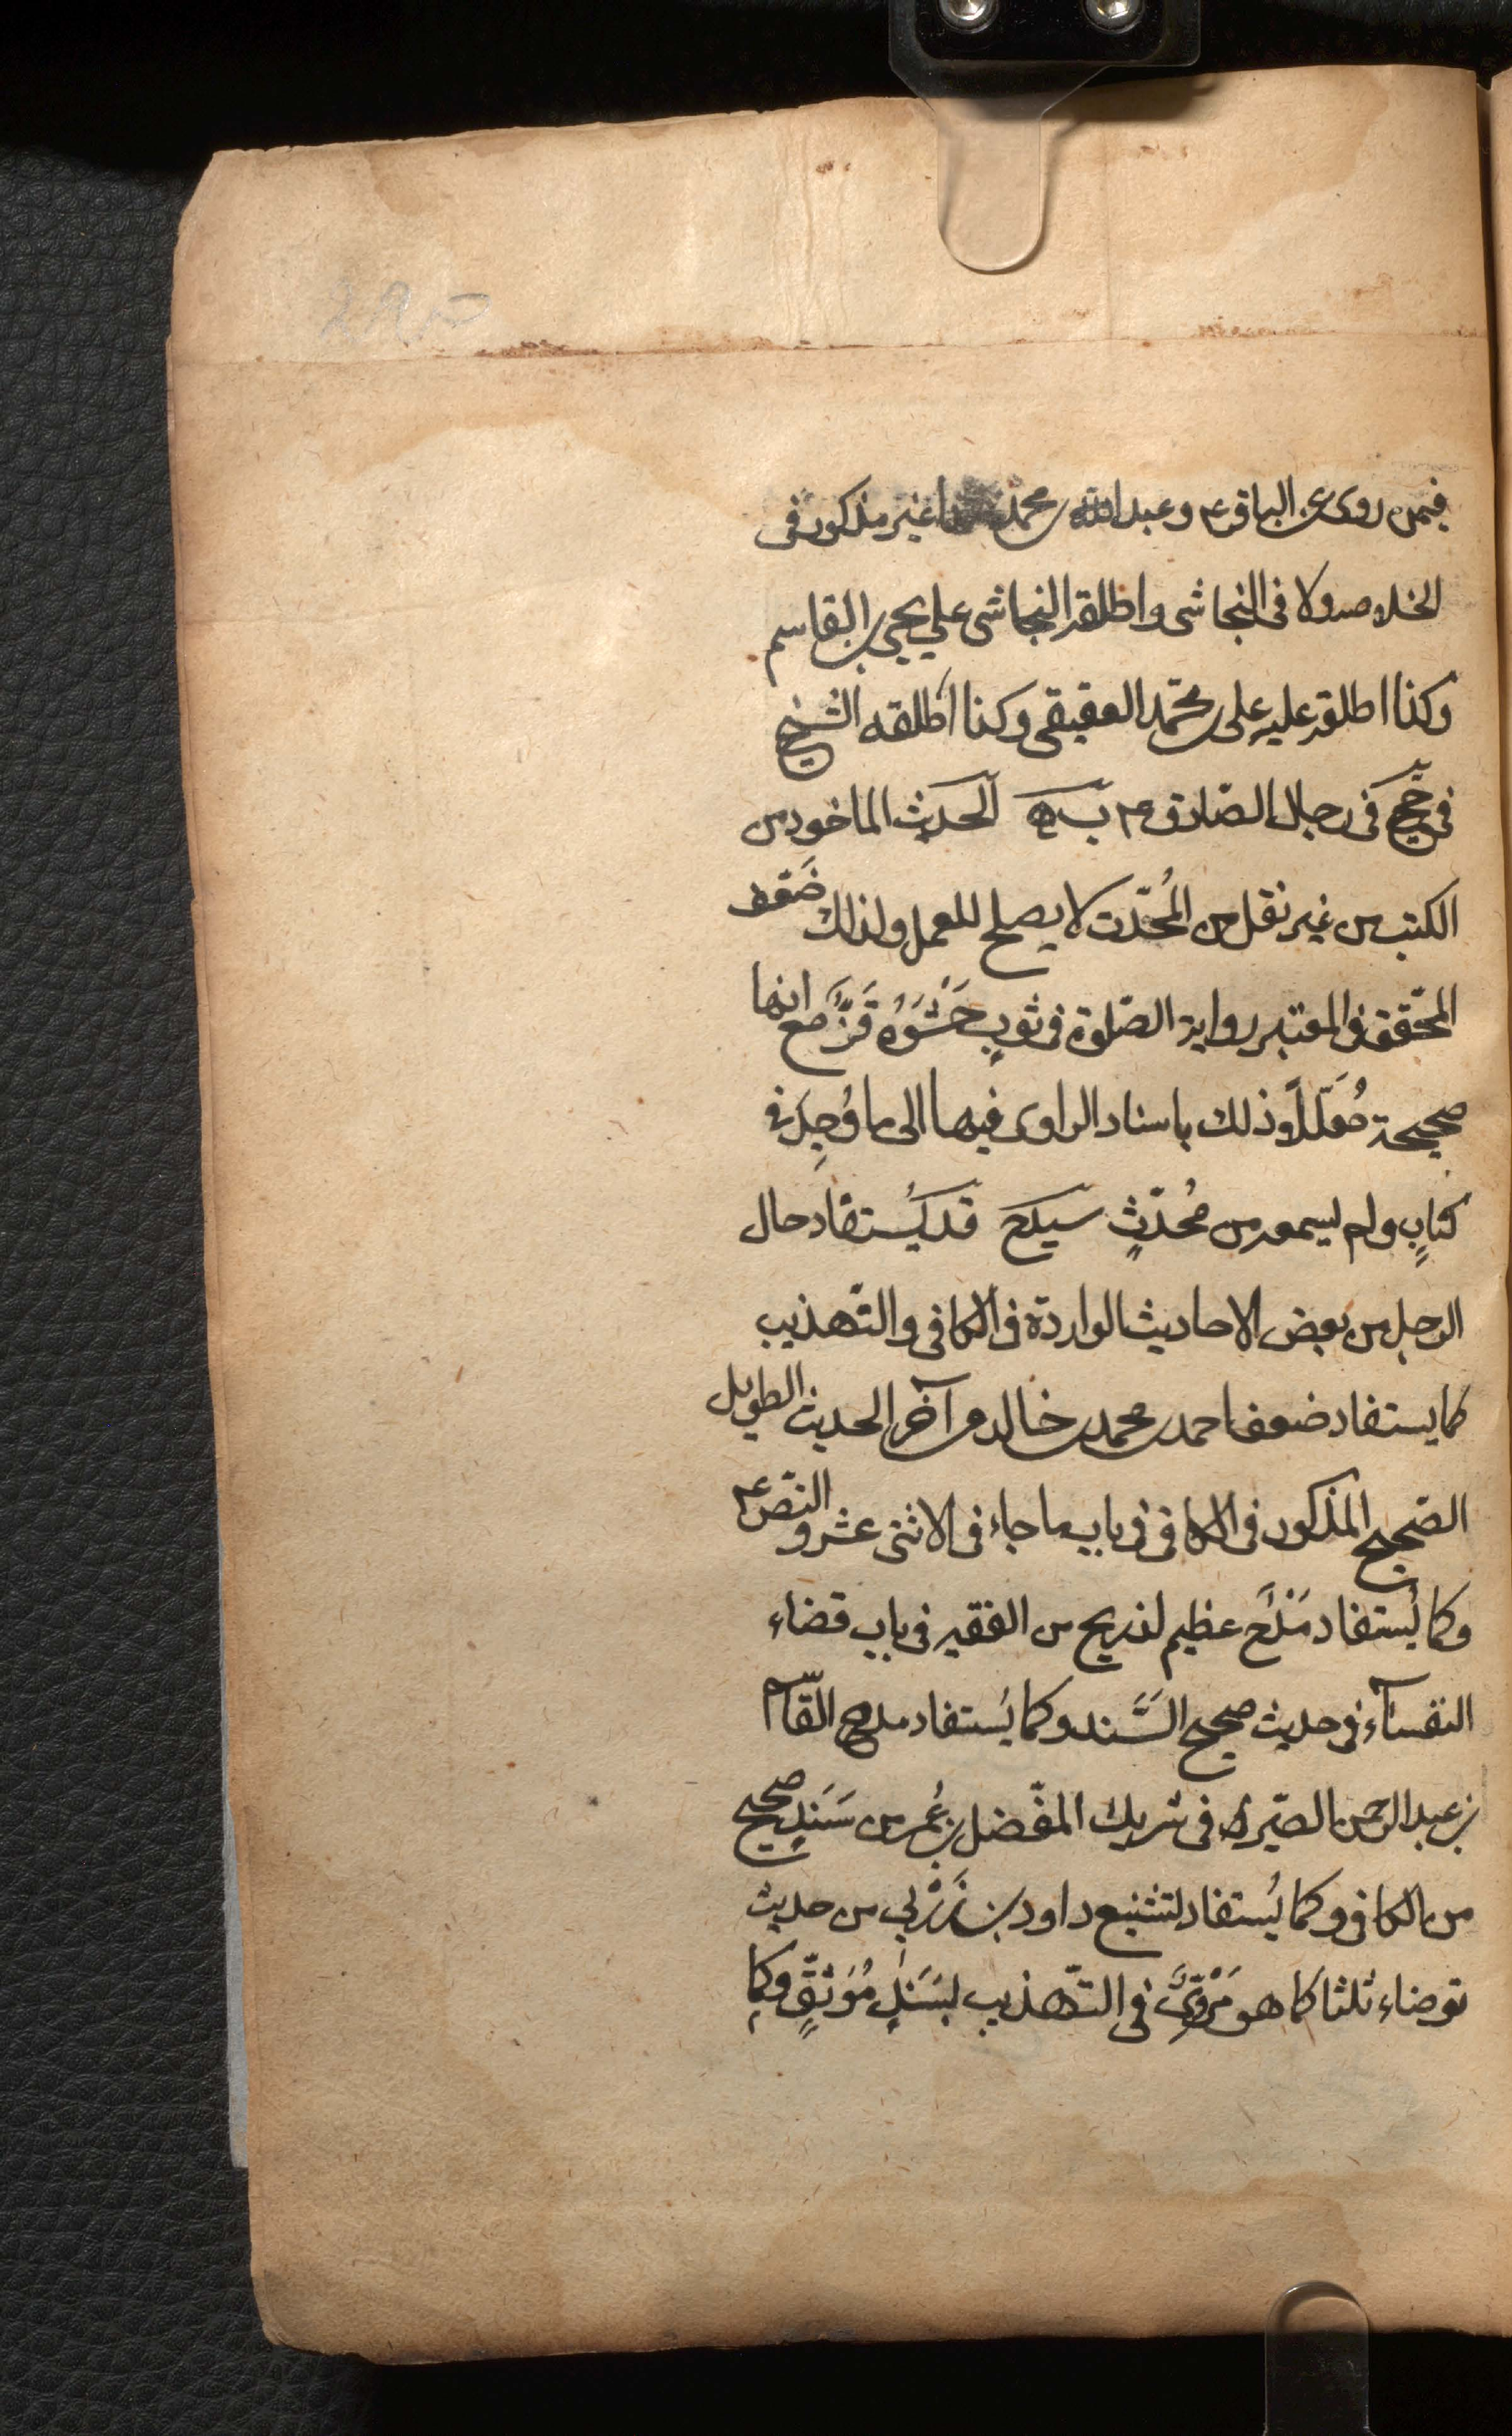 فيمن روى عن الباقر ع وعبد الله بن محمد غير مذكور في
الخلاصه ولا فى النجاشى واطلقه النجاشى على يحيى بن القاسم
وكذا اطلقه عليه على بن محمّد العقيقى وكذا أطلقه الشيخ
فى جخ فى رجال الصّادق ع الحديث الماخوذ من
الكتب من غير نقل من المُحدّث لا يصلح للعمل ولذلك ضَعّف
المحّقق فى المعتبر رواية الصّلوة فى ثوبٍ حَشْوُه قَزٌّ مع انها
صحيحة مُعَلّلاً وذلك باسناد الراوى فيها الى ما وُجِدَ فى
كتابٍ ولم يسمعه من مُحدّثٍ قد يُستفاد حال
الرجل من بعض الاحاديث الواردة فى الكافى والتّهذيب
كما يستفاد ضعف احمد بن محمد بن خالد من آخر الحديث الطويل
الصّحيح المذكور فى الكافى فى باب ما جاء فى الاثنى عشر والنّص ع
وكما يُستفاد مَدْحٌ عظيم لذريح من الفقيه فى باب قضاء
التفسآء فى حديث صحيح السَّند وكما يُستفاد مدح القّاسم
بن عبد الرحمن الصّيرفى شريك المفّضل بن عُمر من سَنَدٍ صحيح
من الكافى وكما يُستفاد تشنيع داود بن زَرْبي من حديث
توضاء ثلثا كما هو مَرْوِىٌّ فى التّهذيب بسَنَدٍ مُوَثّقٍ وكما